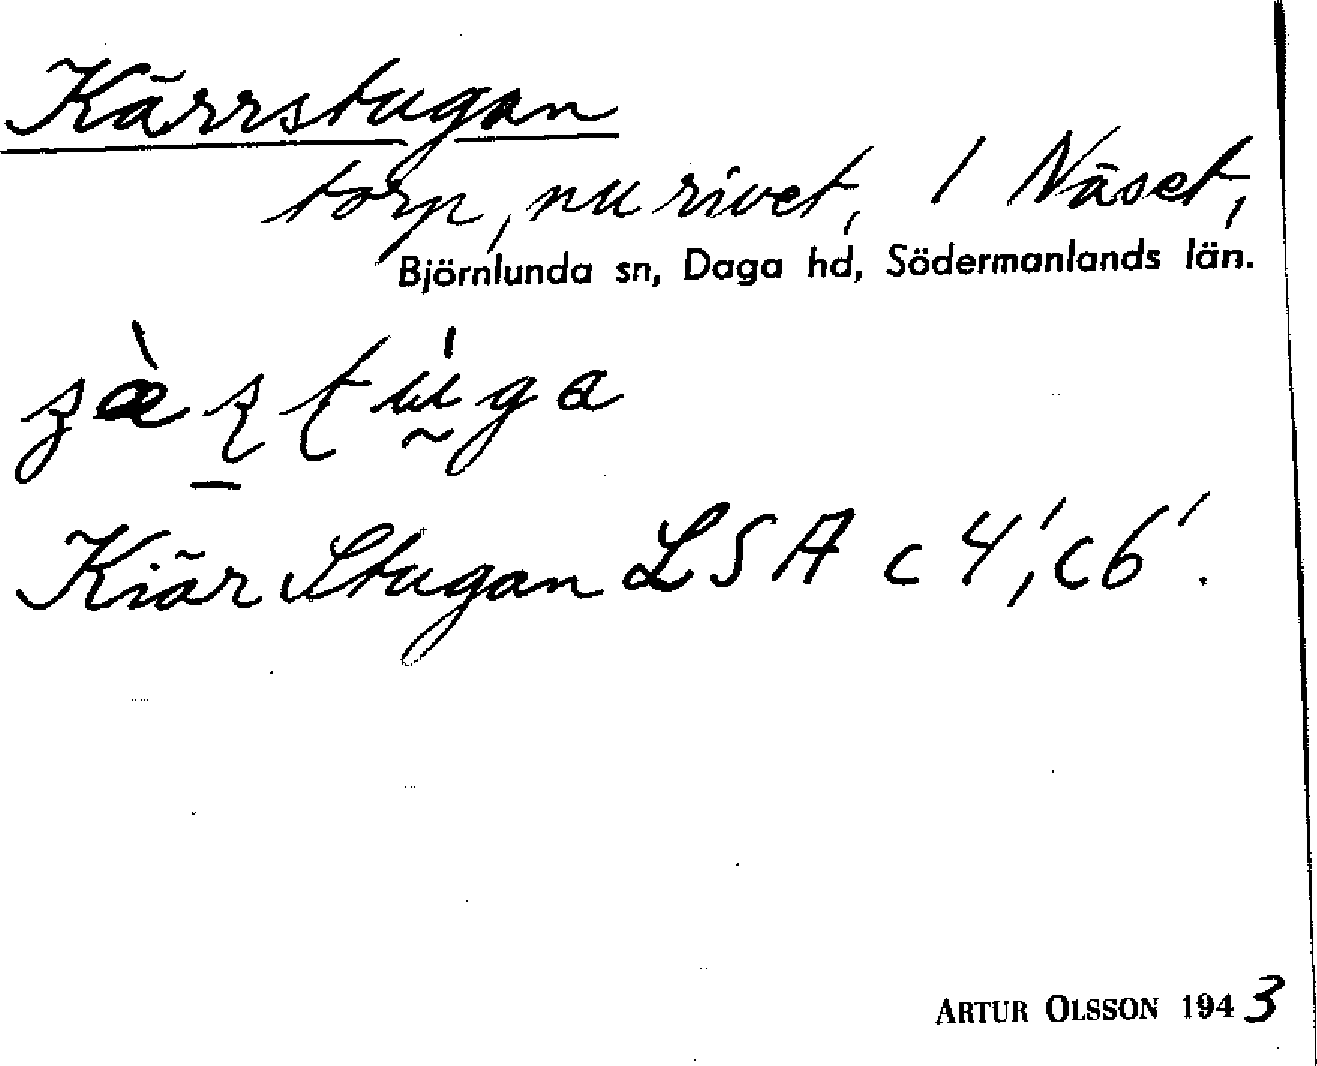 Kärrstugan
torp, nu rivet, 1 Näset,
Björnlunda sn, Daga hd, Södermanlands län.
Kiär Stugan LSA c 4', c6'.
ARTUR OLSSON 1943